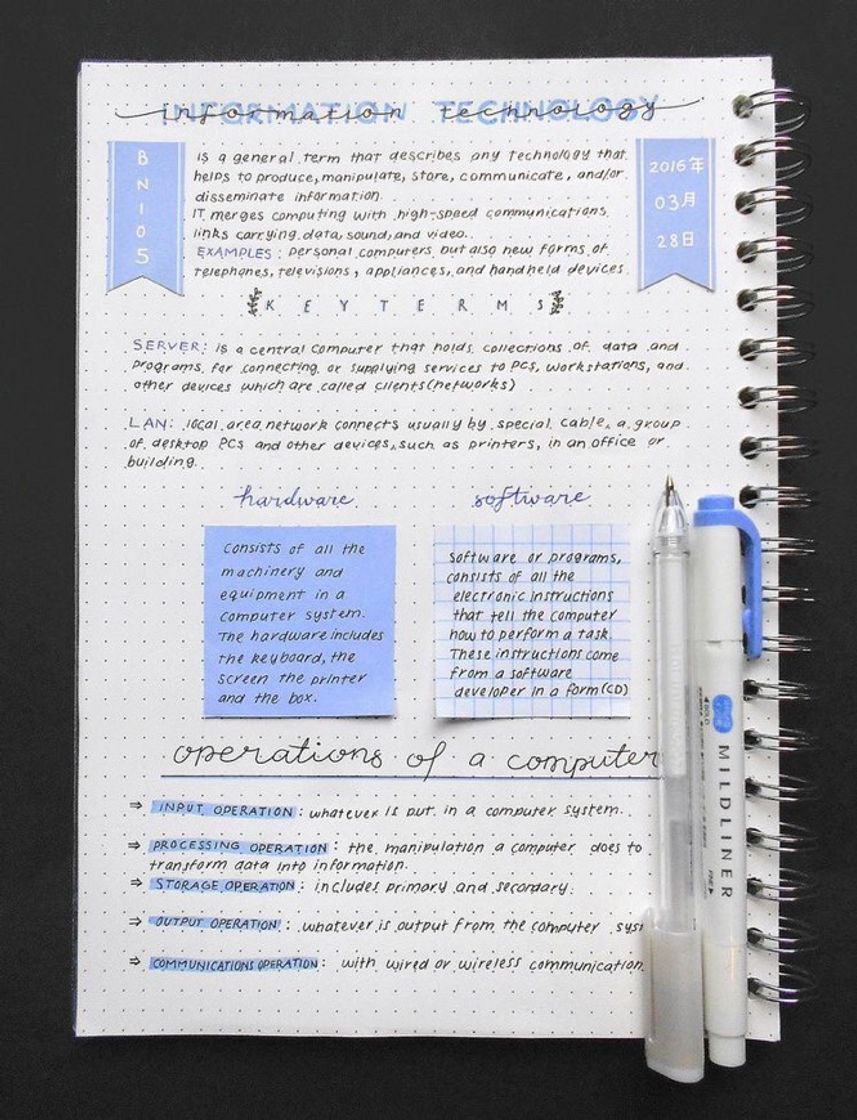 INFORMATION TECHNOLOGY
information technology
BN105
is a general term that describes any technology that
helps to produce, manipulate, store, communicate, and/or
disseminate information.
IT merges computing with high-speed communications
links carrying data, sound, and video.
EXAMPLES: personal computers but also new forms of
telephones, televisions, appliances, and handheld devices.
2016年
03月
28日
KEY TERMS
SERVER: is a central computer that holds collections of data and
programs for connecting or supplying services to PCs, workstations, and
other devices which are called clients(networks)
LAN: local area network connects usually by special cable, a group
of desktop PCs and other devices, such as printers, in an office or
building.
hardware
Consists of all the
machinery and
equipment in a
computer system.
The hardware includes
the keyboard, the
screen the printer
and the box.
software
Software or programs,
consists of all the
electronic instructions
that tell the computer
how to perform a task.
These instructions come
from a software
developer in a form(CD)
operations of a computer
⇒ INPUT OPERATION: whatever is put in a computer system.
⇒ PROCESSING OPERATION: the manipulation a computer does to
transform data into information.
⇒ STORAGE OPERATION: includes primary and secondary.
⇒ OUTPUT OPERATION: whatever is output from the computer syst
⇒ COMMUNICATIONS OPERATION: with wired or wireless communication
MILDLINER